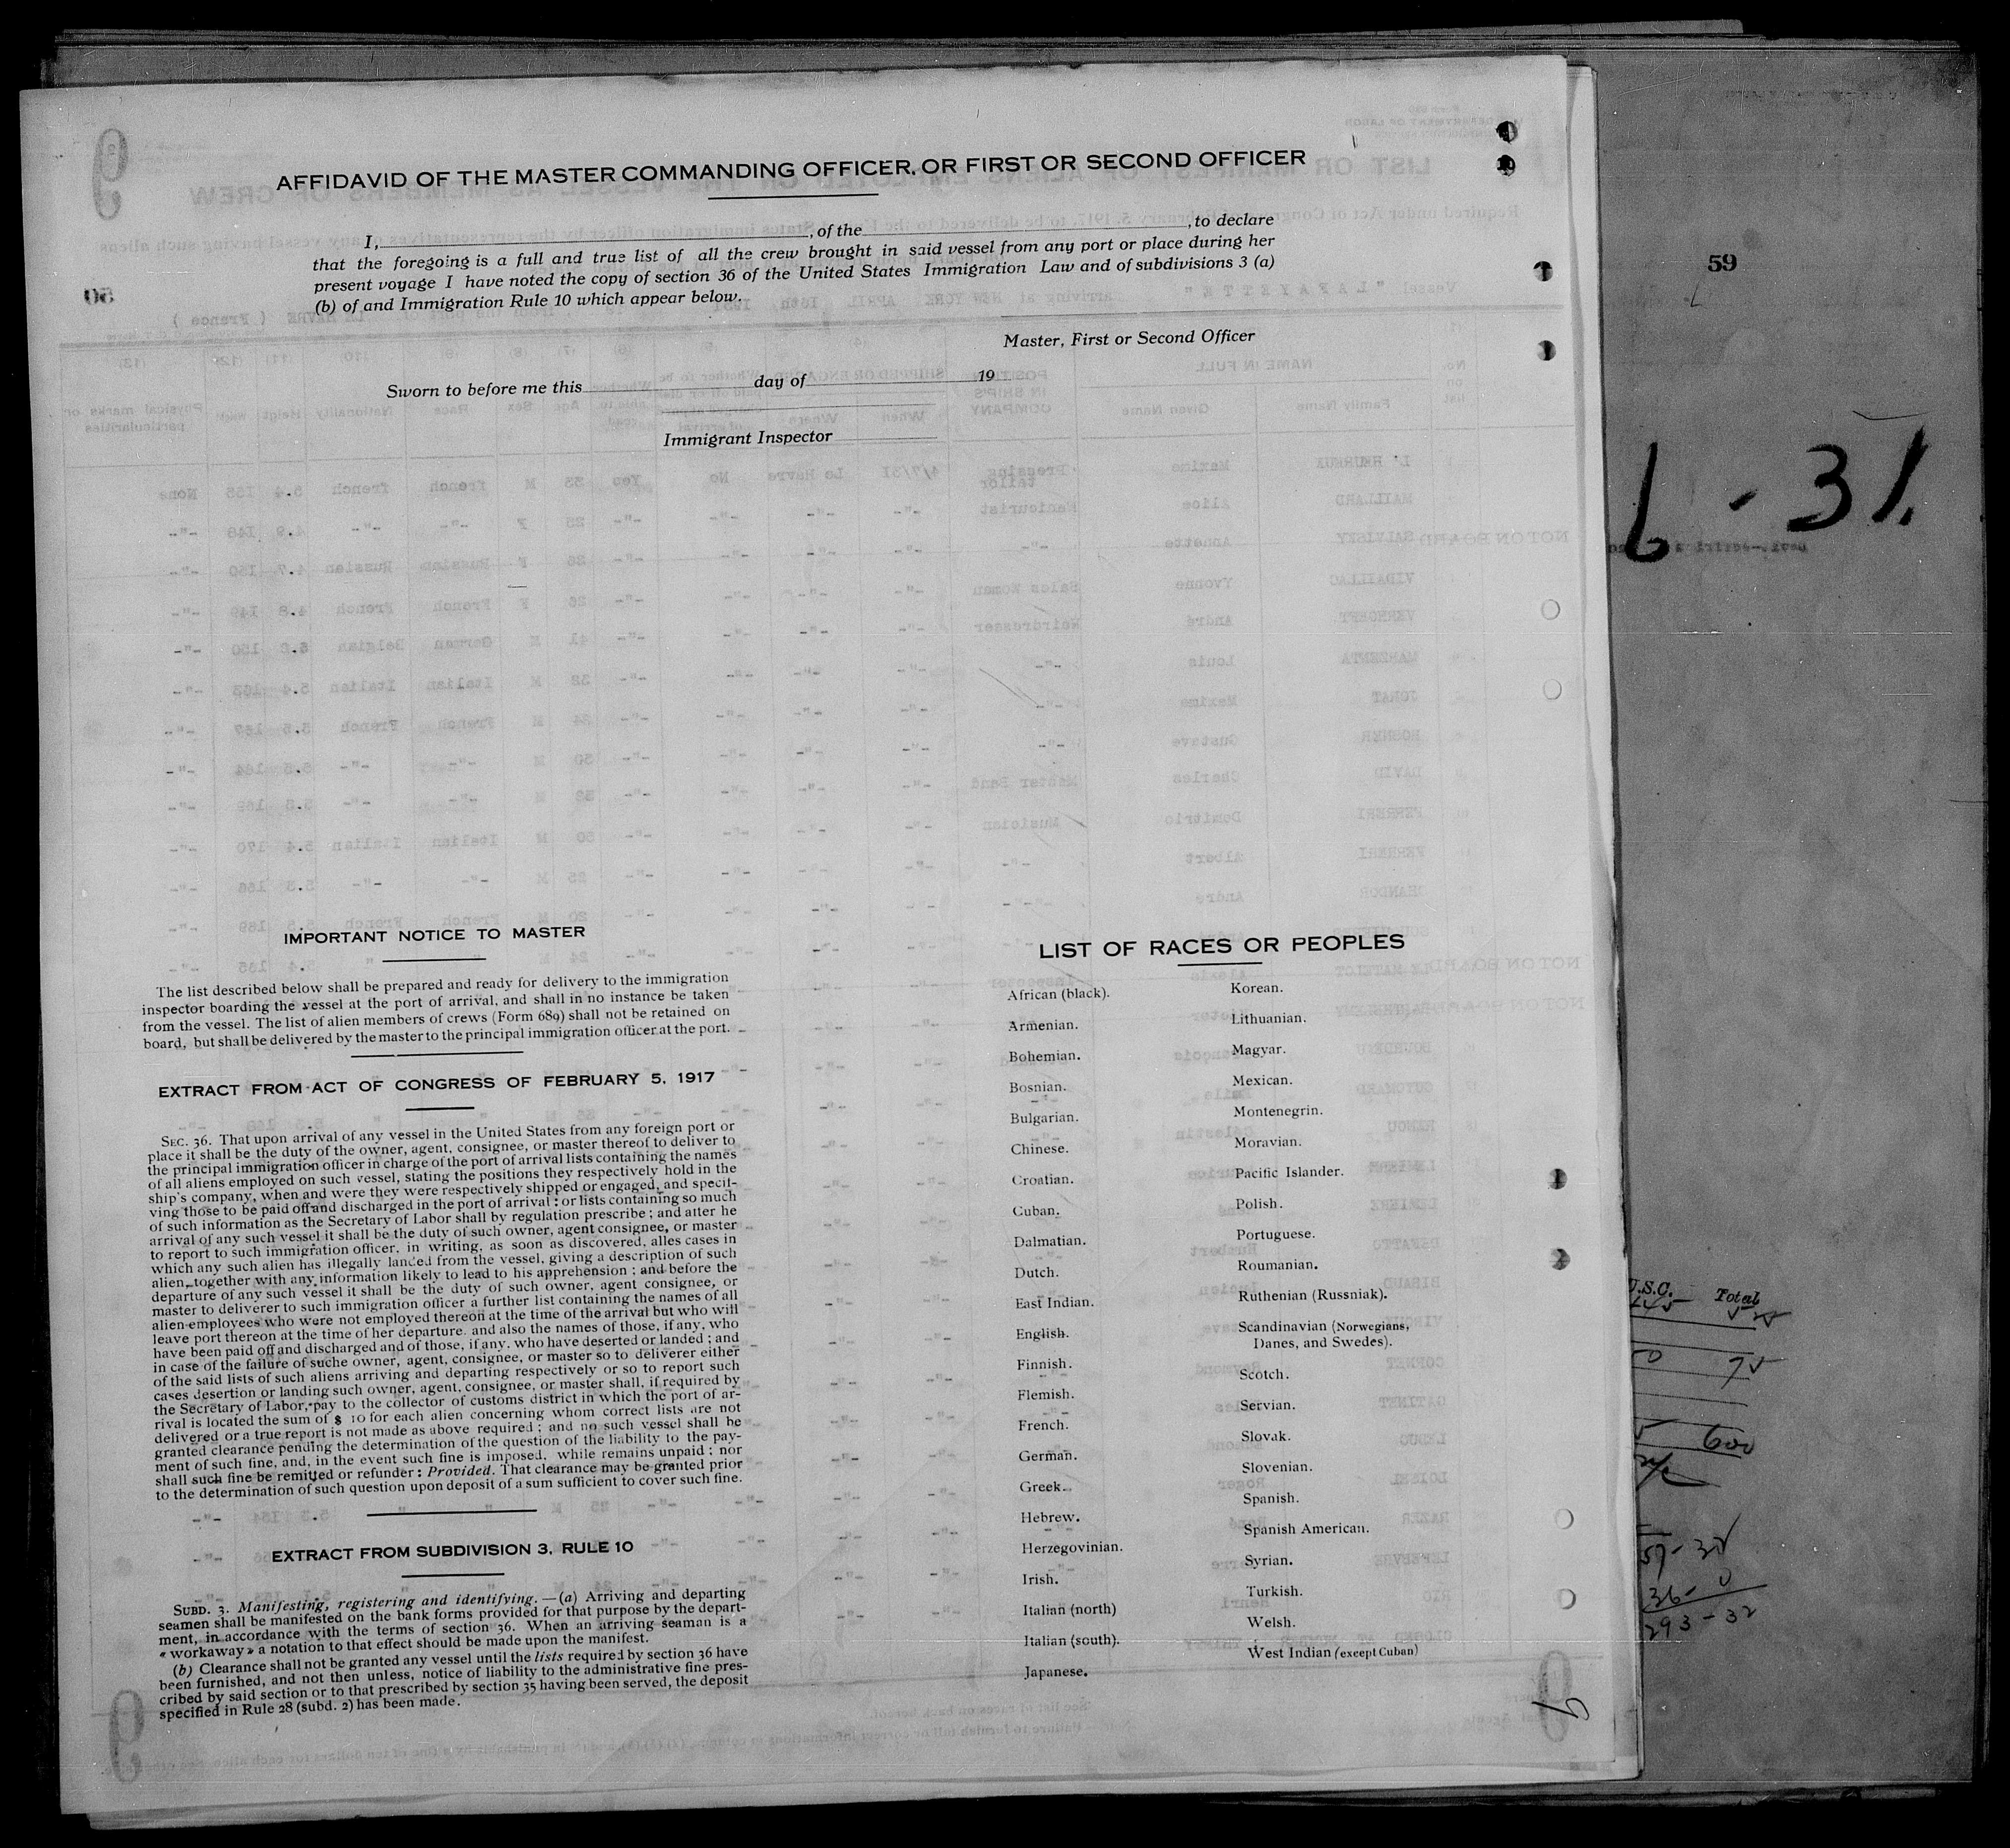 AFFIDAVID OF THE MASTER COMMANDING OFFICER, OR FIRST OR SECOND OFFICER
I, , of the , to declare
that the foregoing is a full and true list of all the crew brought in said vessel from any port or place during her
present voyage I have noted the copy of section 36 of the United States Immigration Law and of subdivisions 3 (a)
(b) of and Immigration Rule 10 which appear below.
Master, First or Second Officer
Sworn to before me this day of 19
Immigrant Inspector
IMPORTANT NOTICE TO MASTER
The list described below shall be prepared and ready for delivery to the immigration
inspector boarding the vessel at the port of arrival, and shall in no instance be taken
from the vessel. The list of alien members of crews (Form 689) shall not be retained on
board, but shall be delivered by the master to the principal immigration officer at the port.
EXTRACT FROM ACT OF CONGRESS OF FEBRUARY 5, 1917
SEC. 36. That upon arrival of any vessel in the United States from any foreign port or
place it shall be the duty of the owner, agent, consignee, or master thereof to deliver to
the principal immigration officer in charge of the port of arrival lists containing the names
of all aliens employed on such vessel, stating the positions they respectively hold in the
ship's company, when and were they were respectively shipped or engaged, and specif-
ving those to be paid off and discharged in the port of arrival : or lists containing so much
of such information as the Secretary of Labor shall by regulation prescribe ; and atter he
arrival of any such vessel it shall be the duty of such owner, agent consignee, or master
to report to such immigration officer, in writing, as soon as discovered, alles cases in
which any such alien has illegally landed from the vessel, giving a description of such
alien, together with any information likely to lead to his apprehension ; and before the
departure of any such vessel it shall be the duty of such owner, agent consignee, or
master to deliverer to such immigration officer a further list containing the names of all
alien employees who were not employed thereon at the time of the arrival but who will
leave port thereon at the time of her departure. and also the names of those, if any, who
have been paid off and discharged and of those, if any. who have deserted or landed ; and
in case of the failure of suche owner, agent, consignee, or master so to deliverer either
of the said lists of such aliens arriving and departing respectively or so to report such
cases desertion or landing such owner, agent, consignee, or master shall, if required by
the Secretary of Labor, pay to the collector of customs district in which the port of ar-
rival is located the sum of $ 10 for each alien concerning whom correct lists are not
delivered or a true report is not made as above required ; and no such vessel shall be
granted clearance pending the determination of the question of the liability to the pay-
ment of such fine, and, in the event such fine is imposed. while remains unpaid ; nor
shall such fine be remitted or refunder : Provided. That clearance may be granted prior
to the determination of such question upon deposit of a sum sufficient to cover such fine.
EXTRACT FROM SUBDIVISION 3, RULE 10
SUBD. 3. Manifesting, registering and identifying. — (a) Arriving and departing
seamen shall be manifested on the bank forms provided for that purpose by the depart-
ment, in accordance with the terms of section 36. When an arriving seaman is a
« workaway » a notation to that effect should be made upon the manifest.
(b) Clearance shall not be granted any vessel until the lists required by section 36 have
been furnished, and not then unless, notice of liability to the administrative fine pres-
cribed by said section or to that prescribed by section 35 having been served, the deposit
specified in Rule 28 (subd. 2) has been made.
LIST OF RACES OR PEOPLES
African (black).
Armenian.
Bohemian.
Bosnian.
Bulgarian.
Chinese.
Croatian.
Cuban.
Dalmatian.
Dutch.
East Indian.
English.
Finnish.
Flemish.
French.
German.
Greek.
Hebrew.
Herzegovinian.
Irish.
Italian (north)
Italian (south).
Japanese.
Korean.
Lithuanian.
Magyar.
Mexican.
Montenegrin.
Moravian.
Pacific Islander.
Polish.
Portuguese.
Roumanian.
Ruthenian (Russniak).
Scandinavian (Norwegians,
Danes, and Swedes).
Scotch.
Servian.
Slovak.
Slovenian.
Spanish.
Spanish American.
Syrian.
Turkish.
Welsh.
West Indian (except Cuban)
59
6 - 31.
U.S.C. Total
600
293 - 32